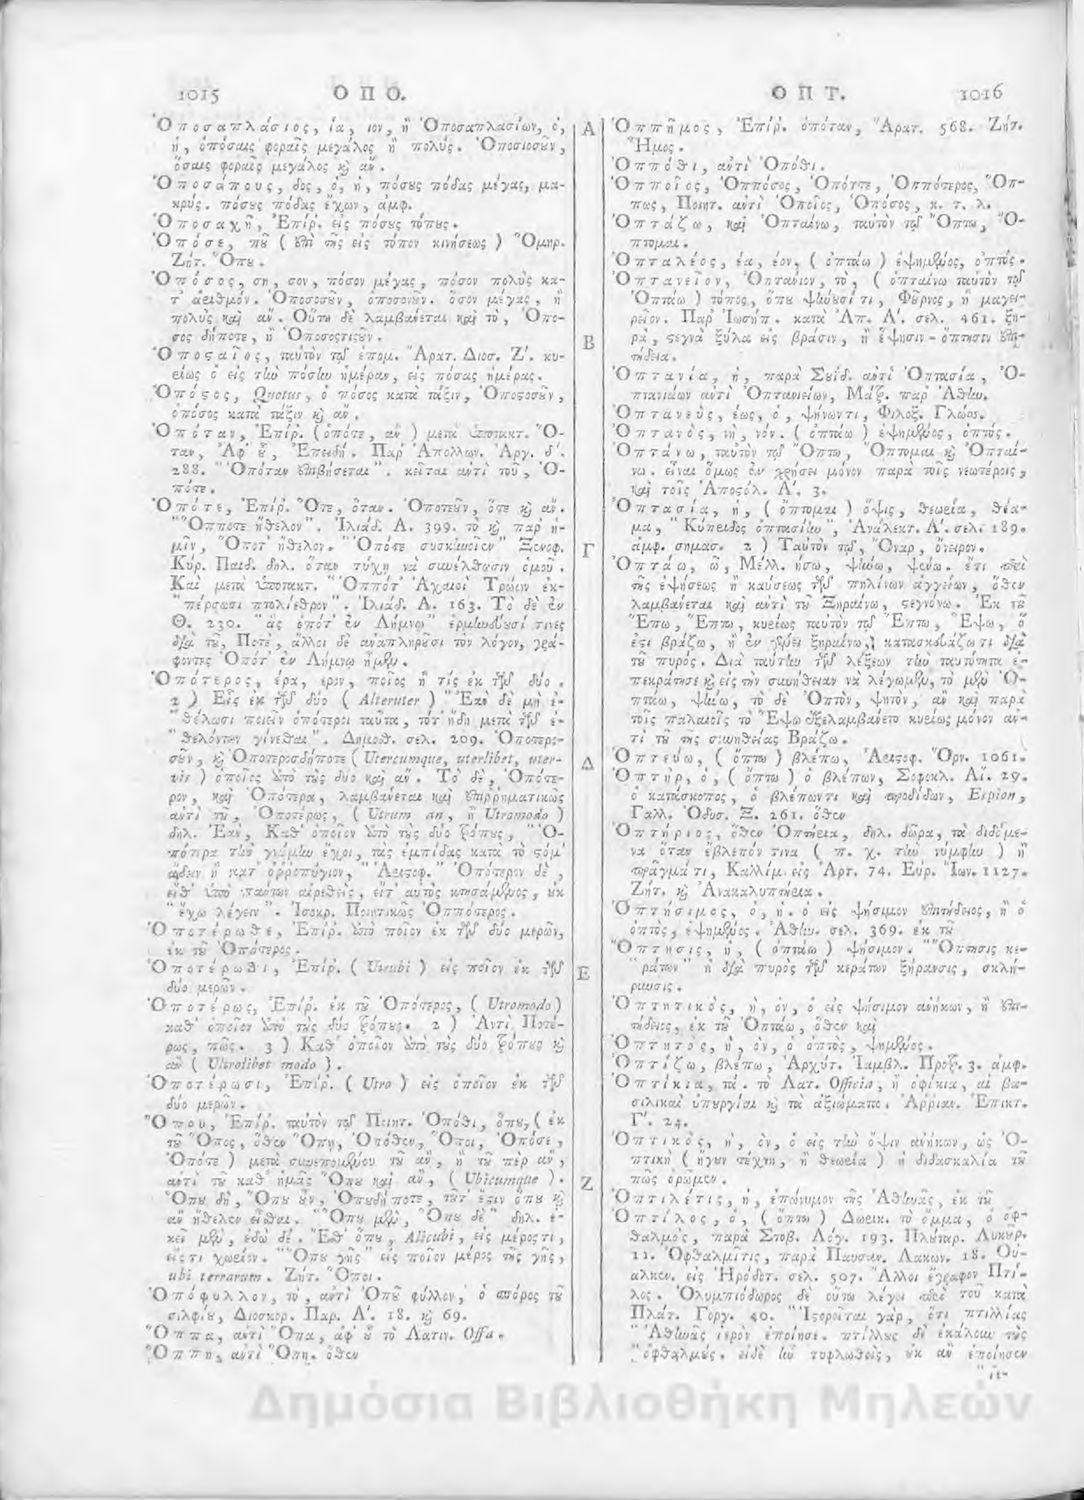 1015 Ο Π Ο.
Ὁποσαπλάσιος, ία, ιον, ἢ Ὁποσαπλασίων, ὁ,
ἡ, ὁπόσαις φοραῖς μεγάλος ἢ πολύς. Ὁποσιοσοῦν,
ὅσαις φοραῖς μεγάλος καὶ ἄν.
Ὁποσάπους, δος, ὁ, ἡ, πόσους πόδας μέγας, μα-
κρύς. πόσους πόδας ἔχων, ἀμφ.
Ὁποσαχῆ, Ἐπίρ. εἰς πόσους τόπους.
Ὁπόσε, ποῦ ( ἐπὶ τῆς εἰς τόπον κινήσεως ) Ὅμηρ.
Ζήτ. Ὅπου.
Ὁπόσος, ση, σον, πόσον μέγας, πόσον πολὺς κα-
τ' ἀριθμόν. Ὁποσοσοῦν, ὁποσονοῦν. ὅσον μέγας, ἢ
πολὺς καὶ ἄν. Οὕτω δὲ λαμβάνεται καὶ τὸ, Ὁπο-
σος δήποτε, ἢ Ὁποσοςτιςοῦν.
Ὁποσταῖος, ταυτὸν τῷ ἑπομ. Ἄρατ. Διοσ. Ζ'. κυ-
ρίως ὁ εἰς τὴν πόστην ἡμέραν, εἰς πόσας ἡμέρας.
Ὁπόστος, Quotus, ὁ πόσος κατὰ τάξιν, Ὁποστοσοῦν,
ὁπόσος κατὰ τάξιν καὶ ἄν.
Ὁπόταν, Ἐπίρ. (ὁπότε, ἂν ) μετὰ ὑποτακτ. Ὅ-
ταν, Ἀφ' οὗ, Ἐπειδή. Παρ' Ἀπολλων. Ἀργ. δ'.
288. "Ὁπόταν ἐπιβήσεται". κεῖται ἀντὶ τοῦ, Ὁ-
πότε.
Ὁπότε, Ἐπίρ. Ὅτε, ὅταν. Ὁποτεοῦν, ὅτε καὶ ἄν.
"Ὅπποτε ἤθελον". Ἰλιάδ. Α. 399. τὸ καὶ παρ' ἡ-
μῖν, Ὅποτ' ἤθελον. "Ὁπότε συσκηνοῖεν" Ξενοφ.
Κύρ. Παιδ. δηλ. ὅταν τύχῃ νὰ συνέλθωσιν ὁμοῦ.
Καὶ μετὰ ὑποτακτ. "Ὁππότ' Ἀχαιοὶ Τρώων ἐκ-
"πέρσωσι πτολίεθρον". Ἰλιάδ. Α. 163. Τὸ δὲ ἐν
Θ. 230. "ἃς ὁπότ' ἐν Λήμνῳ" ἑρμηνεύουσί τινες
διὰ τοῦ, Ποτέ, ἄλλοι δὲ ἀναπληροῦσι τὸν λόγον, γρά-
φοντες Ὁπότ' ἐν Λήμνῳ ἦμεν.
Ὁπότερος, έρα, ερον, ποῖος ἢ τίς ἐκ τῶν δύο.
2 ) Εἷς ἐκ τῶν δύο ( Alteruter ) "Ἐὰν δὲ μὴ ἐ-
"θέλωσι ποιεῖν ὁπότεροι ταῦτα, τότ' ἤδη μετὰ τῶν ἐ-
"θελόντων γίνεσθαι". Δημοσθ. σελ. 209. Ὁποτερο-
σοῦν, καὶ Ὁποτεροσδήποτε ( Utercumque, uterlibet, uter-
vis ) ὁποῖος ἀπὸ τοὺς δύο καὶ ἄν. Τὸ δὲ, Ὁπότε-
ρον, καὶ Ὁπότερα, λαμβάνεται καὶ ἐπιρρηματικῶς
ἀντὶ τοῦ, Ὁποτέρως, ( Utrum an, ἢ Utromodo )
δηλ. Ἐὰν, Καθ' ὁποῖον ἀπὸ τοὺς δύο τρόπους, "Ὁ-
Ὁποτέρωθε, Ἐπίρ. ἀπὸ ποῖον ἐκ τῶν δύο μερῶν,
ἐκ τοῦ Ὁπότερος.
Ὁποτέρωθι, Ἐπίρ. ( Utrubi ) εἰς ποῖον ἐκ τῶν
δύο μερῶν.
Ὁποτέρως, Ἐπίρ. ἐκ τοῦ Ὁπότερος, ( Utromodo )
καθ' ὁποῖον ἀπὸ τοὺς δύο τρόπους. 2 ) Ἀντὶ Ποτέ-
ρως, πῶς. 3 ) Καθ' ὁποῖον ἀπὸ τοὺς δύο τρόπους καὶ
ἂν ( Utrolibet modo ).
Ὁποτέρωσι, Ἐπίρ. ( Utro ) εἰς ὁποῖον ἐκ τῶν
δύο μερῶν.
Ὅπου, Ἐπίρ. ταυτὸν τῷ Ποιητ. Ὁπόθι, ὅπου, ( ἐκ
τοῦ Ὅπος, ὅθεν Ὅπη, Ὁπόθεν, Ὅποι, Ὁπόσε,
Ὁπότε ) μετὰ συνεπομένου τοῦ ἂν, ἢ τοῦ πὲρ ἂν,
ἀντὶ τοῦ καθ' ἡμᾶς Ὅπου καὶ ἂν, ( Ubicumque ).
Ὅπου δὴ, Ὅπου οὖν, Ὁπουδήποτε, τοῦτ' ἔστιν ὅπου καὶ
ἂν ἤθελεν εἶσθαι. "Ὅπου μὲν, Ὅπου δὲ" δηλ. ἐ-
κεῖ μὲν, ἐδῶ δέ. Ἔσθ' ὅπου, Alicubi, εἰς μέρος τι,
εἴς τι χωρίον. "Ὅπου γῆς" εἰς ποῖον μέρος τῆς γῆς,
ubi terrarum. Ζήτ. Ὅποι.
Ὁπόφυλλον, τὸ, ἀντὶ Ὀποῦ φύλλον, ὁ σπόρος τοῦ
σιλφίου, Διοσκορ. Παρ. Α'. 18. καὶ 69.
Ὄππα, ἀντὶ Ὄπα, ἀφ' οὗ τὸ Λατιν. Offa.
Ὅππη, ἀντὶ Ὅπη. ὅθεν
Α
Β
Γ
Δ
Ε
Ζ
Ο Π Τ. 1016
Ὁππῆμος, Ἐπίρ. ὁπόταν, Ἄρατ. 568. Ζήτ.
Ἦμος.
Ὁππόθι, ἀντὶ Ὁπόθι.
Ὁπποῖος, Ὁππόσος, Ὁπότε, Ὁππότερος, Ὅπ-
πως, Ποιητ. ἀντὶ Ὁποῖος, Ὁπόσος, κ. τ. λ.
Ὀπτάζω, καὶ Ὀπταίνω, ταυτὸν τῷ Ὄπτω, Ὄ-
πτομαι.
Ὀπταλέος, έα, έον, ( ὀπτάω ) ἐψημένος, ὀπτός.
Ὀπτανεῖον, Ὀπτάνιον, τὸ, ( ὀπταίνω ταυτὸν τῷ
Ὀπτάω ) τόπος, ὅπου ψήνουσί τι, Φοῦρνος, ἢ μαγει-
ρεῖον. Παρ' Ἰωσήπ. κατὰ Ἀπ. Α'. σελ. 461. ξη-
ρὰ, στεγνὰ ξύλα εἰς βράσιν, ἢ ἕψησιν - ὄπτησιν ἐπι-
τήδεια.
Ὀπτανία, ἡ, παρὰ Σουΐδ. ἀντὶ Ὀπτασία, Ὀ-
πτανιῶν ἀντὶ Ὀπτανιείων, Μάτρ. παρ' Ἀθην.
Ὀπτανεὺς, έως, ὁ, ψήνωντι, Φιλοξ. Γλώσσ.
Ὀπτανὸς, νὴ, νόν. ( ὀπτάω ) ἐψημένος, ὀπτός.
Ὀπτάνω, ταυτὸν τῷ Ὄπτω, Ὄπτομαι καὶ Ὀπταί-
νω. εἶναι ὅμως ἐν χρήσει μόνον παρὰ τοῖς νεωτέροις,
καὶ τοῖς Ἀποστόλ. Α'. 3.
Ὀπτασία, ἡ, ( ὄπτομαι ) ὄψις, θεωρία, θέα-
μα, "Κύπριδος ὀπτασίην", Ἀνάλεκτ. Α'. σελ. 189.
ἀμφ. σημασ. 2 ) Ταυτὸν τῷ, Ὄναρ, ὄνειρον.
Ὀπτάω, ῶ, Μέλλ. ήσω, ψήνω, ψαίνω. ἔτι περὶ
τῆς ἑψήσεως ἢ καύσεως τῶν πηλίνων ἀγγείων, ὅθεν
λαμβάνεται καὶ ἀντὶ τοῦ Ξηραίνω, στεγνόνω. Ἐκ τοῦ
Ἔπω, Ἔπτω, κυρίως ταυτὸν τῷ Ἕπτω, Ἕψω, ὅ
ἐστι βράζω, ἢ ἐν γένει ξηραίνω, κατασκευάζω τι διὰ
τοῦ πυρός. Διὰ ταύτην τῶν λέξεων τὴν ταυτότητα ἐ-
πεκράτησε καὶ εἰς τὴν συνήθειαν νὰ λέγωμεν, τὸ μὲν Ὀ-
πτάω, ψήνω, τὸ δὲ Ὀπτὸν, ψητὸν, ἂν καὶ παρὰ
τοῖς παλαιοῖς τὸ Ἕψω ἐξελαμβάνετο κυρίως μόνον ἀν-
τὶ τοῦ τῆς συνηθείας Βράζω.
Ὀπτεύω, ( ὄπτω ) βλέπω, Ἀριστοφ. Ὄρν. 1061.
Ὀπτὴρ, ὁ, ( ὄπτω ) ὁ βλέπων, Σοφοκλ. Αἴ. 29.
ὁ κατάσκοπος, ὁ βλέπωντι καὶ προδίδων, Espion,
Γαλλ. Ὀδυσ. Ξ. 261. ὅθεν
Ὀπτήριος, ὅθεν Ὀπτήρια, δηλ. δῶρα, τὰ διδόμε-
να ὅταν ἔβλεπόν τινα ( π. χ. τὴν νύμφην ) ἢ
πρᾶγμά τι, Καλλίμ. εἰς Ἄρτ. 74. Εὐρ. Ἴων. 1127.
Ζήτ. καὶ Ἀνακαλυπτήρια.
Ὀπτήσιμος, ὁ, ἡ. ὁ εἰς ψήσιμον ἐπιτήδειος, ἢ ὁ
ὀπτὸς, ἐψημένος. Ἀθην. σελ. 369. ἐκ τοῦ
Ὄπτησις, ἡ, ( ὀπτάω ) ψήσιμον. "Ὄπτησις κε-
"ράτων" ἡ διὰ πυρὸς τῶν κεράτων ξήρανσις, σκλή-
ρωσις.
Ὀπτητικὸς, ὴ, ὸν, ὁ εἰς ψήσιμον ἀνήκων, ἢ ἐπι-
τήδειος, ἐκ τοῦ Ὀπτάω, ὅθεν καὶ
Ὀπτητὸς, ὴ, ὸν, ὁ ὀπτὸς, ψημένος.
Ὀπτίζω, βλέπω, Ἀρχύτ. Ἰαμβλ. Προτρ. 3. ἀμφ.
Ὀπτίκια, τά. τὸ Λατ. Officia, ἢ ὀφίκια, αἱ βα-
σιλικαὶ ὑπουργίαι καὶ τὰ ἀξιώματα. Ἀρριαν. Ἐπικτ.
Γ'. 24.
Ὀπτικὸς, ὴ, ὸν, ὁ εἰς τὴν ὄψιν ἀνήκων, ὡς Ὀ-
πτικὴ ( ἤγουν τέχνη, ἢ θεωρία ) ἡ διδασκαλία τοῦ
πῶς ὁρῶμεν.
Ὀπτιλέτις, ἡ, ἐπώνυμον τῆς Ἀθηνᾶς, ἐκ τοῦ
Ὀπτίλος, ὁ, ( ὄπτω ) Δωρικ. τὸ ὄμμα, ὁ ὀφ-
θαλμὸς, παρὰ Στοβ. Λόγ. 193. Πλούταρ. Λυκούρ.
11. Ὀφθαλμῖτις, παρὰ Παυσαν. Λακων. 18. Οὐ-
αλκεν. εἰς Ἡρόδοτ. σελ. 507. Ἄλλοι ἔγραφον Πτί-
λος. Ὀλυμπιόδωρος δὲ οὕτω λέγει περὶ του κατὰ
Πλάτ. Γοργ. 40. "Ἱστορεῖται γὰρ, ὅτι πτιλλίας
"Ἀθηνᾶς ἱερὸν ἐποίησε. πτίλλους δὲ ἐκάλουν τοὺς
"ὀφθαλμούς. εἰδὲ ἦν τυφλωθεὶς, οὐκ ἂν ἐποίησεν
Δημόσια Βιβλιοθήκη Μηλεών